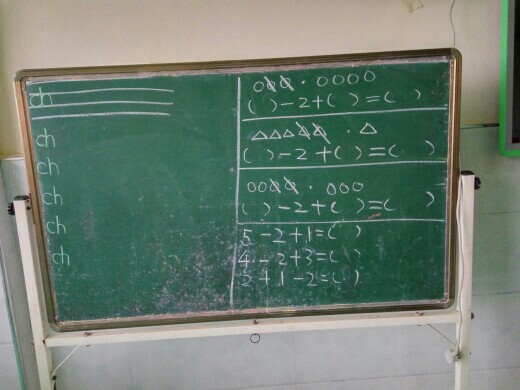 ch
ch
ch
ch
ch
ch
( )-2+( )=( )
( )-2+( )=( )
( )-2+( )=( )
5-2+1=( )
4-2+3=( )
2+1-2=( )